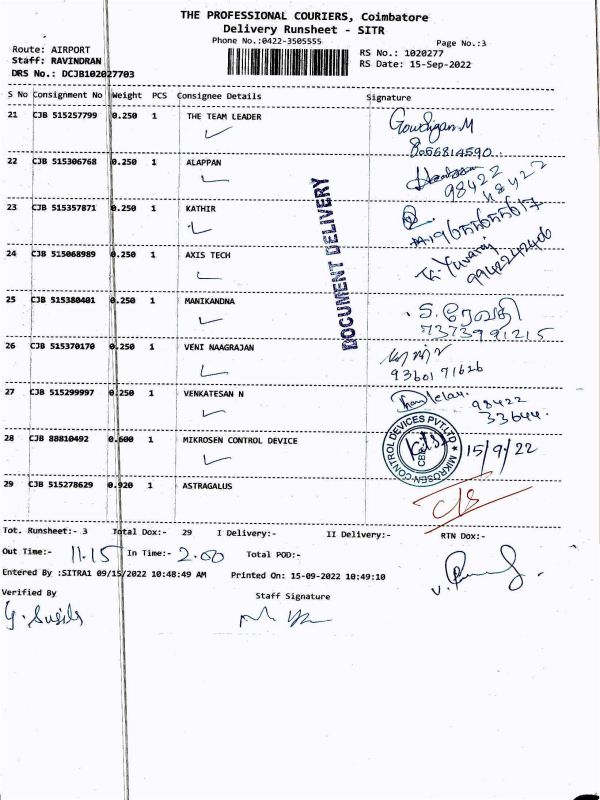 THE PROFESSIONAL COURIERS, Coimbatore
Delivery Runsheet - SITR
Phone No.:0422-3505555
Page No.:3
Route: AIRPORT
RS No.: 1020277
Staff: RAVINDRAN
RS Date: 15-Sep-2022
DRS No.: DCJB102027703
S No Consignment No Weight PCS Consignee Details Signature
21 CJB 515257799 0.250 1 THE TEAM LEADER
8056814590
22 CJB 515306768 0.250 1 ALAPPAN
98422
48422
23 CJB 515357871 0.250 1 KATHIR
9655655617
24 CJB 515068989 0.250 1 AXIS TECH
Yuvaraj
9942242406
25 CJB 515380401 0.250 1 MANIKANDNA
S. ரேவதி
7373991215
26 CJB 515370170 0.250 1 VENI NAAGRAJAN
9360171626
27 CJB 515299997 0.250 1 VENKATESAN N
98422
33644
28 CJB 88810492 0.600 1 MIKROSEN CONTROL DEVICE
MIKROSEN-CONTROL DEVICES PVT.LTD
15/9/22
29 CJB 515278629 0.920 1 ASTRAGALUS
C/S
DOCUMENT DELIVERY
Tot. Runsheet:- 3 Total Dox:- 29 I Delivery:- II Delivery:- RTN Dox:-
Out Time:- 11.15 In Time:- 2.00 Total POD:-
Entered By :SITRA1 09/15/2022 10:48:49 AM Printed On: 15-09-2022 10:49:10
Verified By
Staff Signature